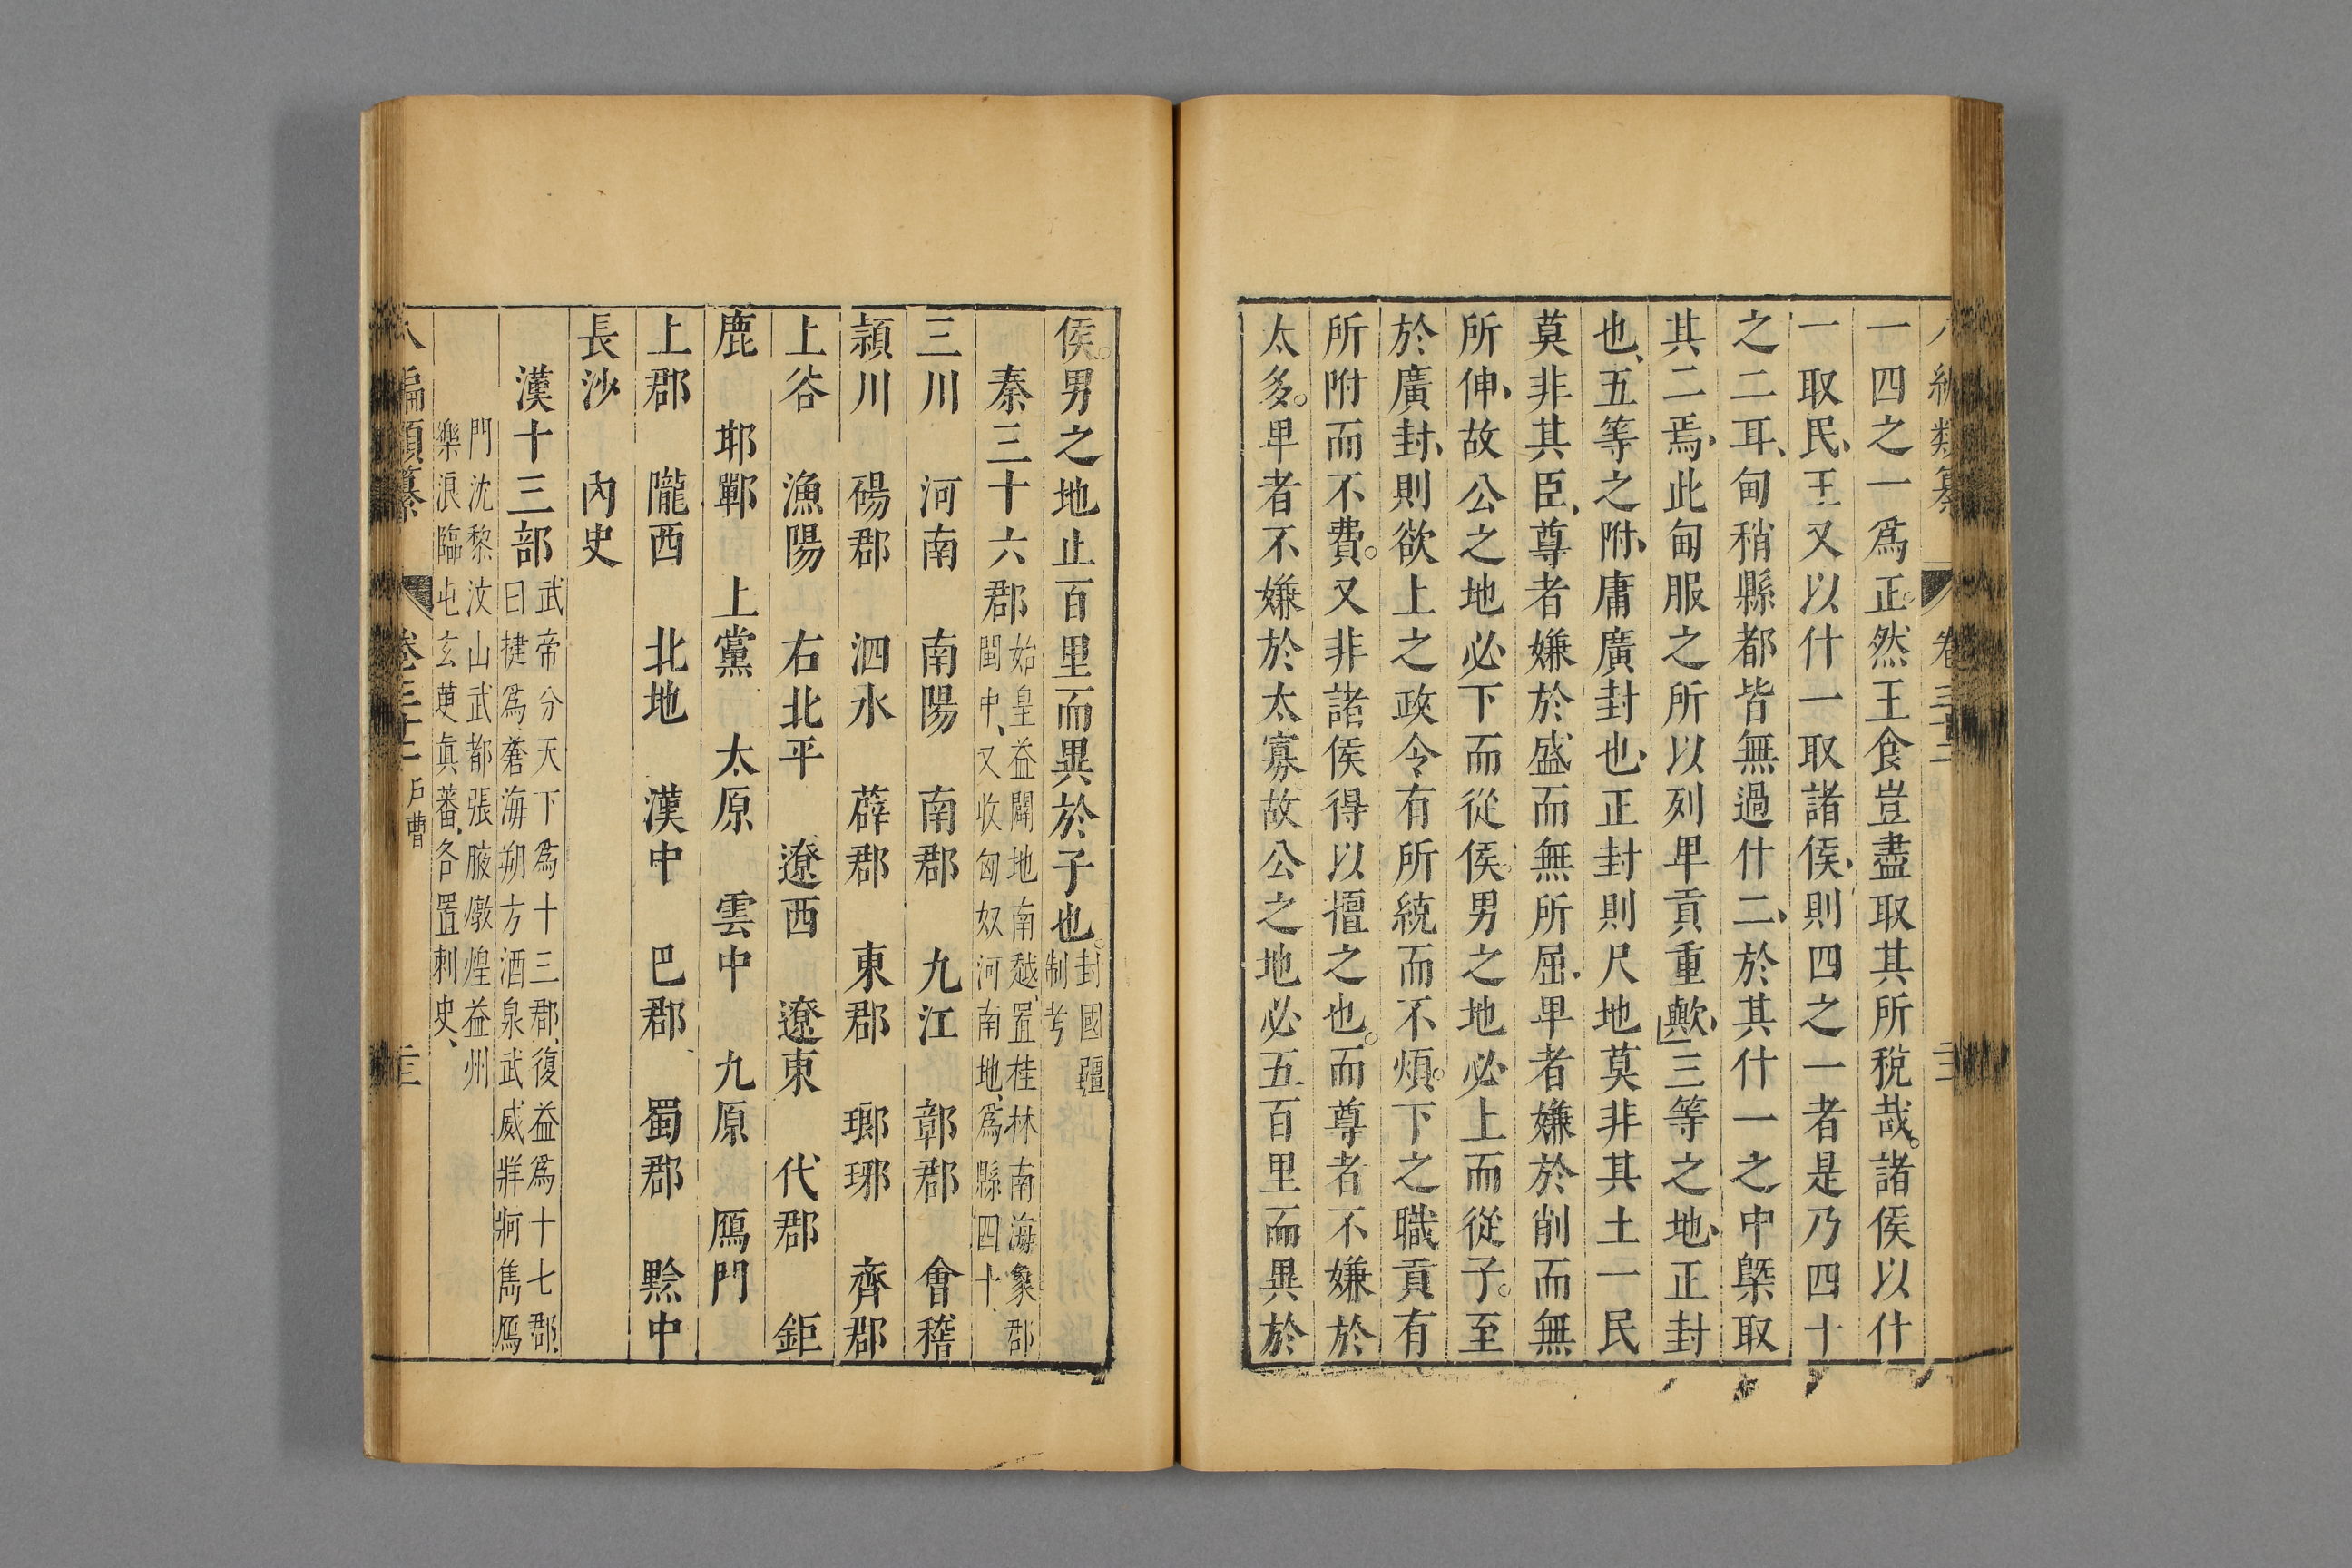 一四之一爲正。然王食豈盡取其所稅哉。諸侯以什
一取民、王又以什一取諸侯、則四之一者是乃四十
之二耳、甸稍縣都皆無過什二、於其什一之中槩取
其二焉、此甸服之所以列卑貢重歟、三等之地、正封
也、五等之附、庸廣封也、正封則尺地莫非其土一民
莫非其臣、尊者嫌於盛而無所屈、卑者嫌於削而無
所伸、故公之地必下而從侯。男之地必上而從子。至
於廣封、則欲上之政令有所統而不煩。下之職貢有
所附而不費。又非諸侯得以擅之也。而尊者不嫌於
太多。卑者不嫌於太寡故公之地必五百里而異於
侯。男之地止百里而異於子也。封國疆
制考
秦三十六郡始皇益闢地南越、置桂林南海象郡
閩中、又收匈奴河南地、爲縣四十、
三川　河南　南陽　南郡　九江　鄣郡　會稽
潁川　碭郡　泗水　薛郡　東郡　瑯琊　齊郡
上谷　漁陽　右北平　遼西　遼東　代郡　鉅
鹿　邯鄲　上黨　太原　雲中　九原　鴈門
上郡　隴西　北地　漢中　巴郡　蜀郡　黔中
長沙　內史
漢十三部武帝分天下爲十三郡、復益爲十七郡、
曰揵爲蒼海朔方酒泉武威牂牁雋鴈
門沈黎汶山武都張腋燉煌益州
樂浪臨屯玄菟眞蕃、各置刺史、
八編類纂　卷三十二　戶曹